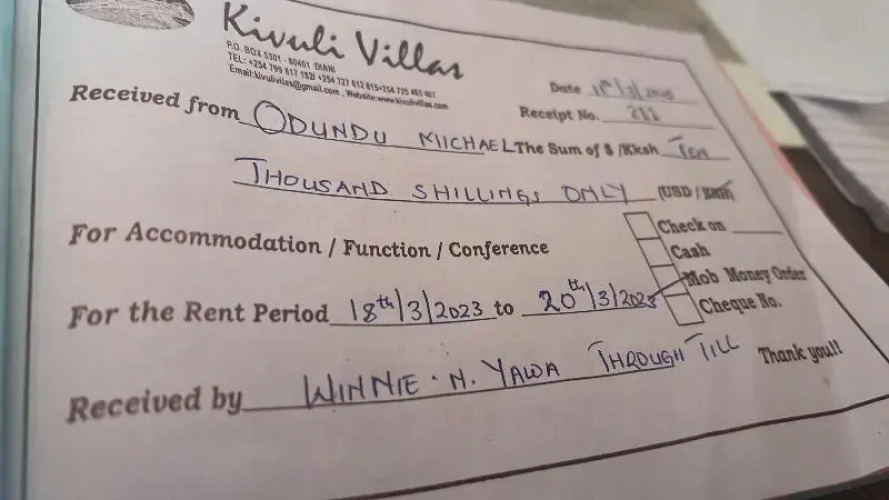 Kivuli Villas
P.O. BOX 5301 - 80401 DIANI
TEL: +254 799 617 182/ +254 727 612 815+254 725 465 901
Email:kivulivillas@gmail.com , Website:www.kivulivillas.com
Date
Receipt No. 211
Received from ODUNDU MICHAEL The Sum of $ /Kksh TEN
THOUSAND SHILLINGS ONLY (USD / Ksh)
For Accommodation / Function / Conference
Check on
Cash
Mob Money Order
Cheque No.
For the Rent Period 18th/3/2023 to 20th/3/2023
Received by WINNIE. N. YAWA THROUGH TILL
Thank you!!